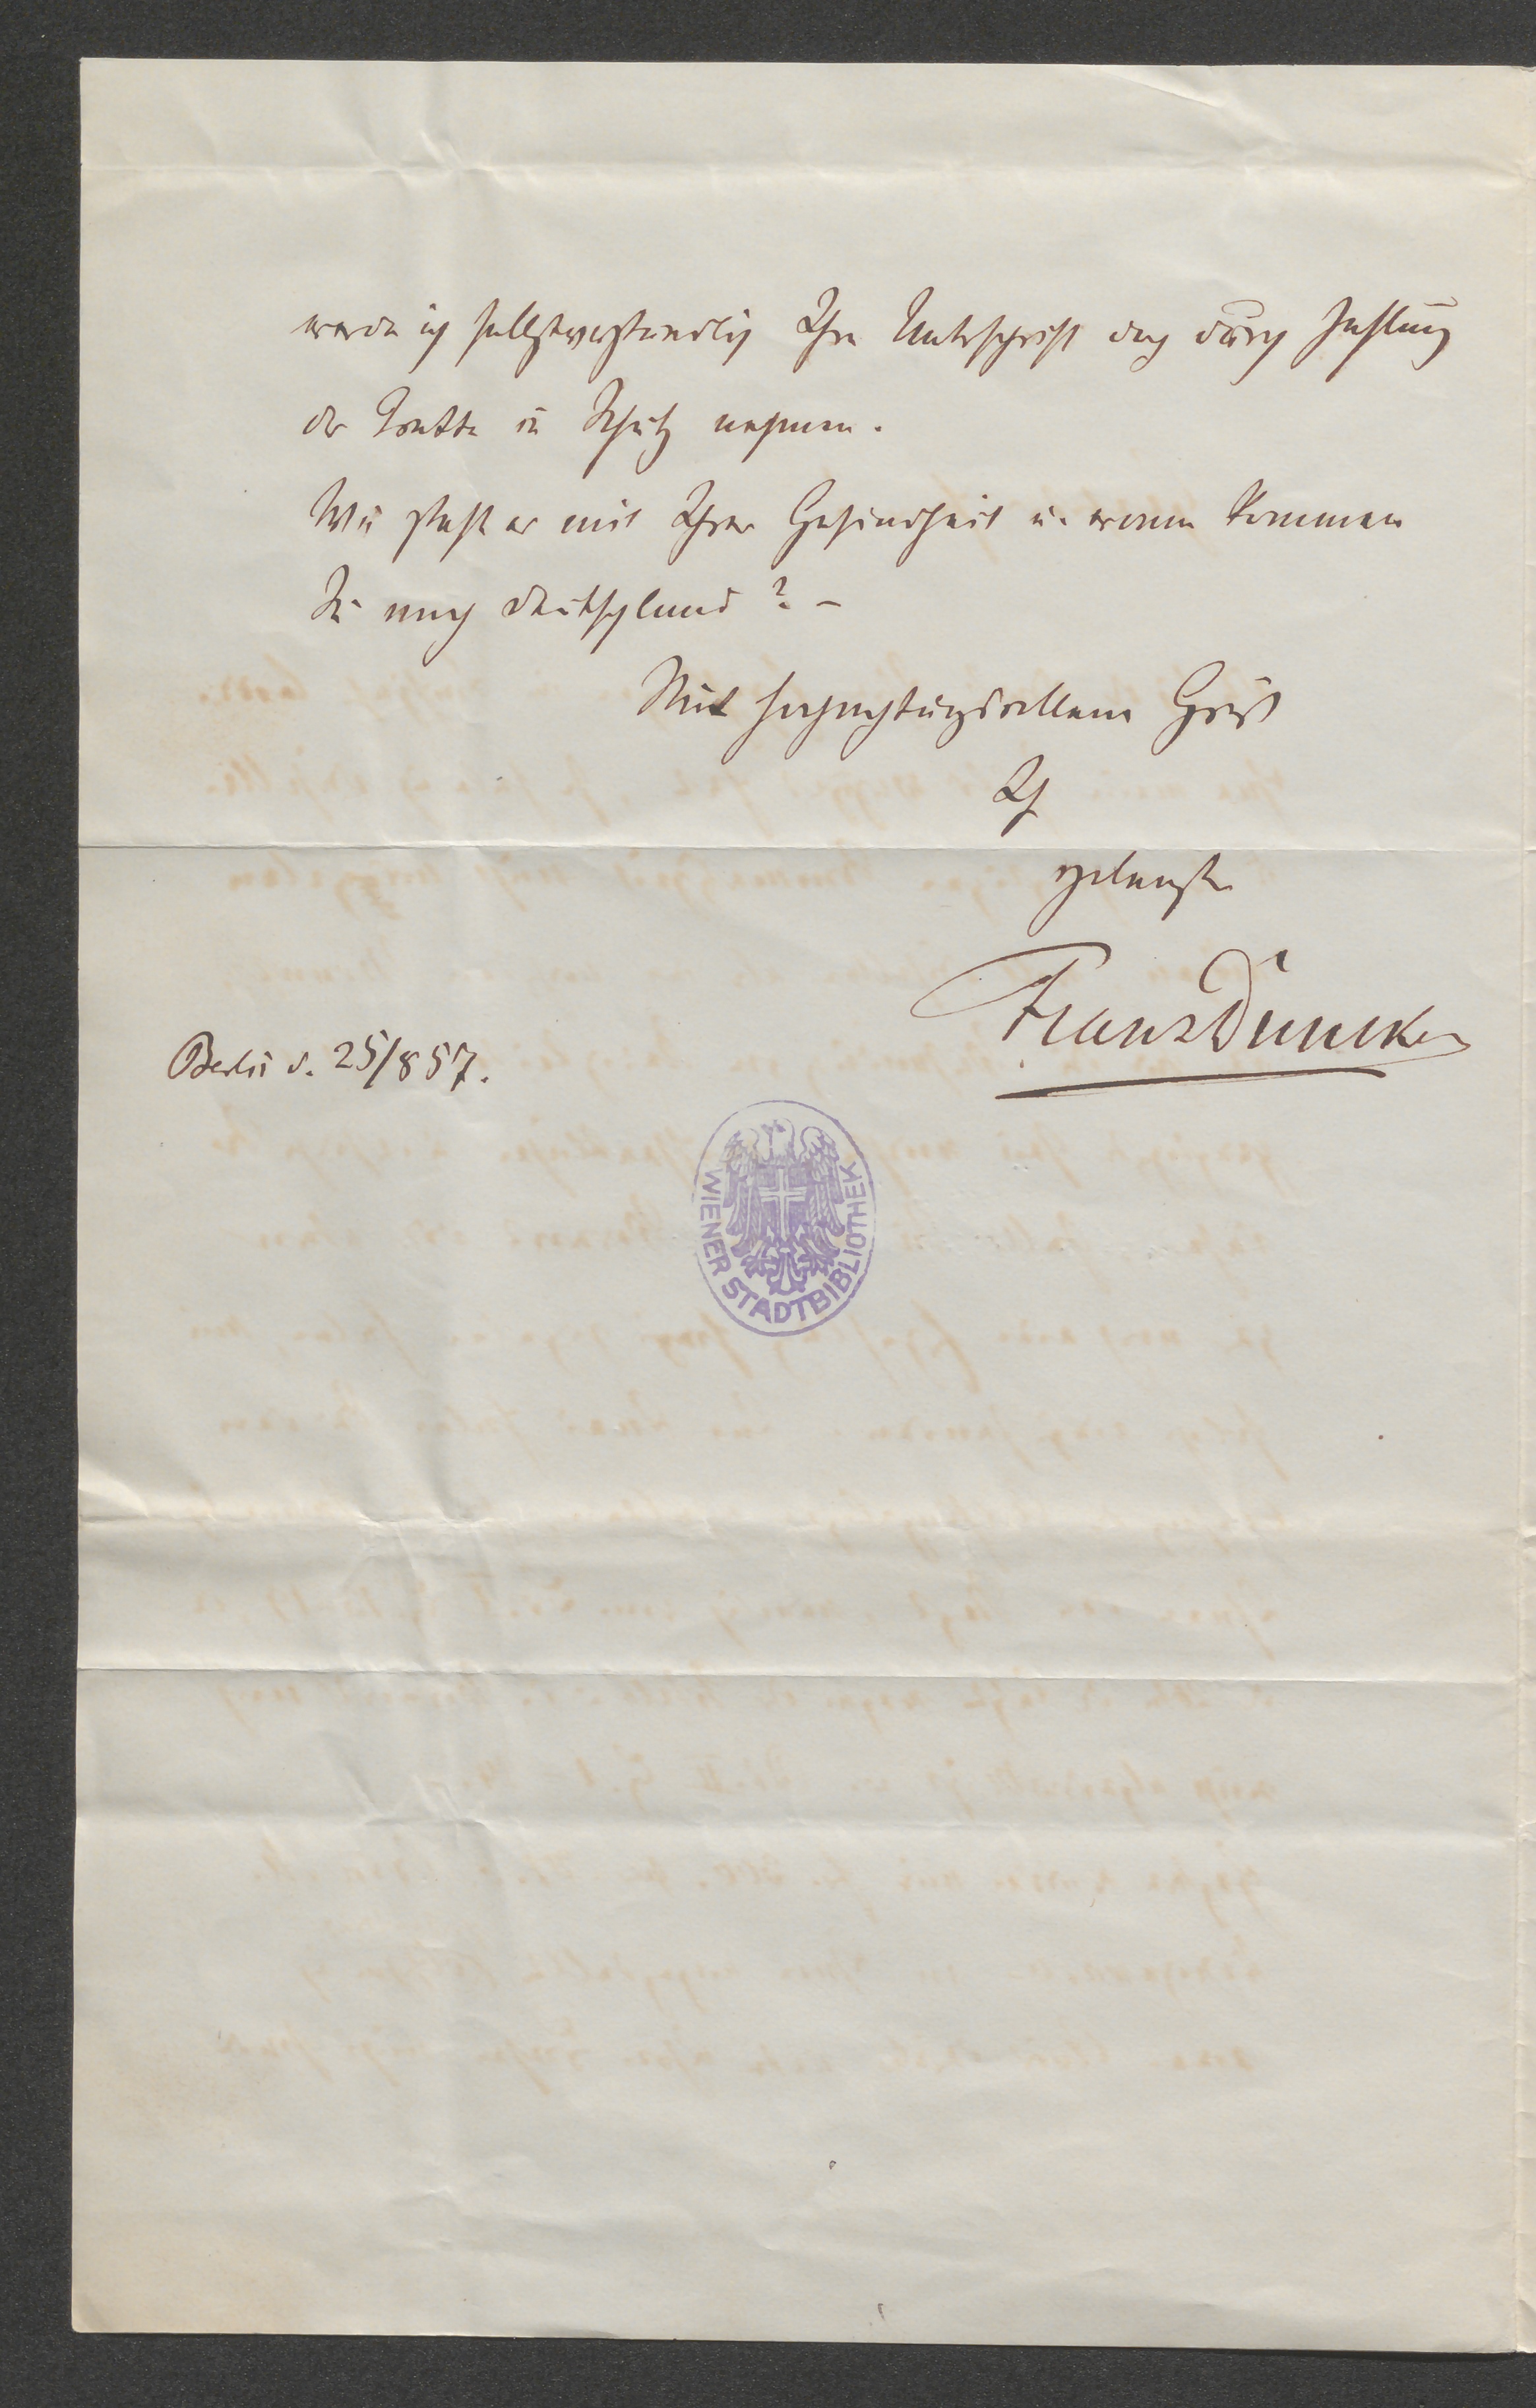 werde ich selbstverständlich Ihre Unterschrift doch durch Zahlung
der Tratte in Schutz nehmen.
Wie steht es mit Ihrer Gesundheit u. wann kommen
Sie nach Deutschland? –
Mit hochachtungsvollem Gruß
Ihr
ergebenster
Franz Duncker
Berlin d. 25/8 57.
WIENER STADTBIBLIOTHEK